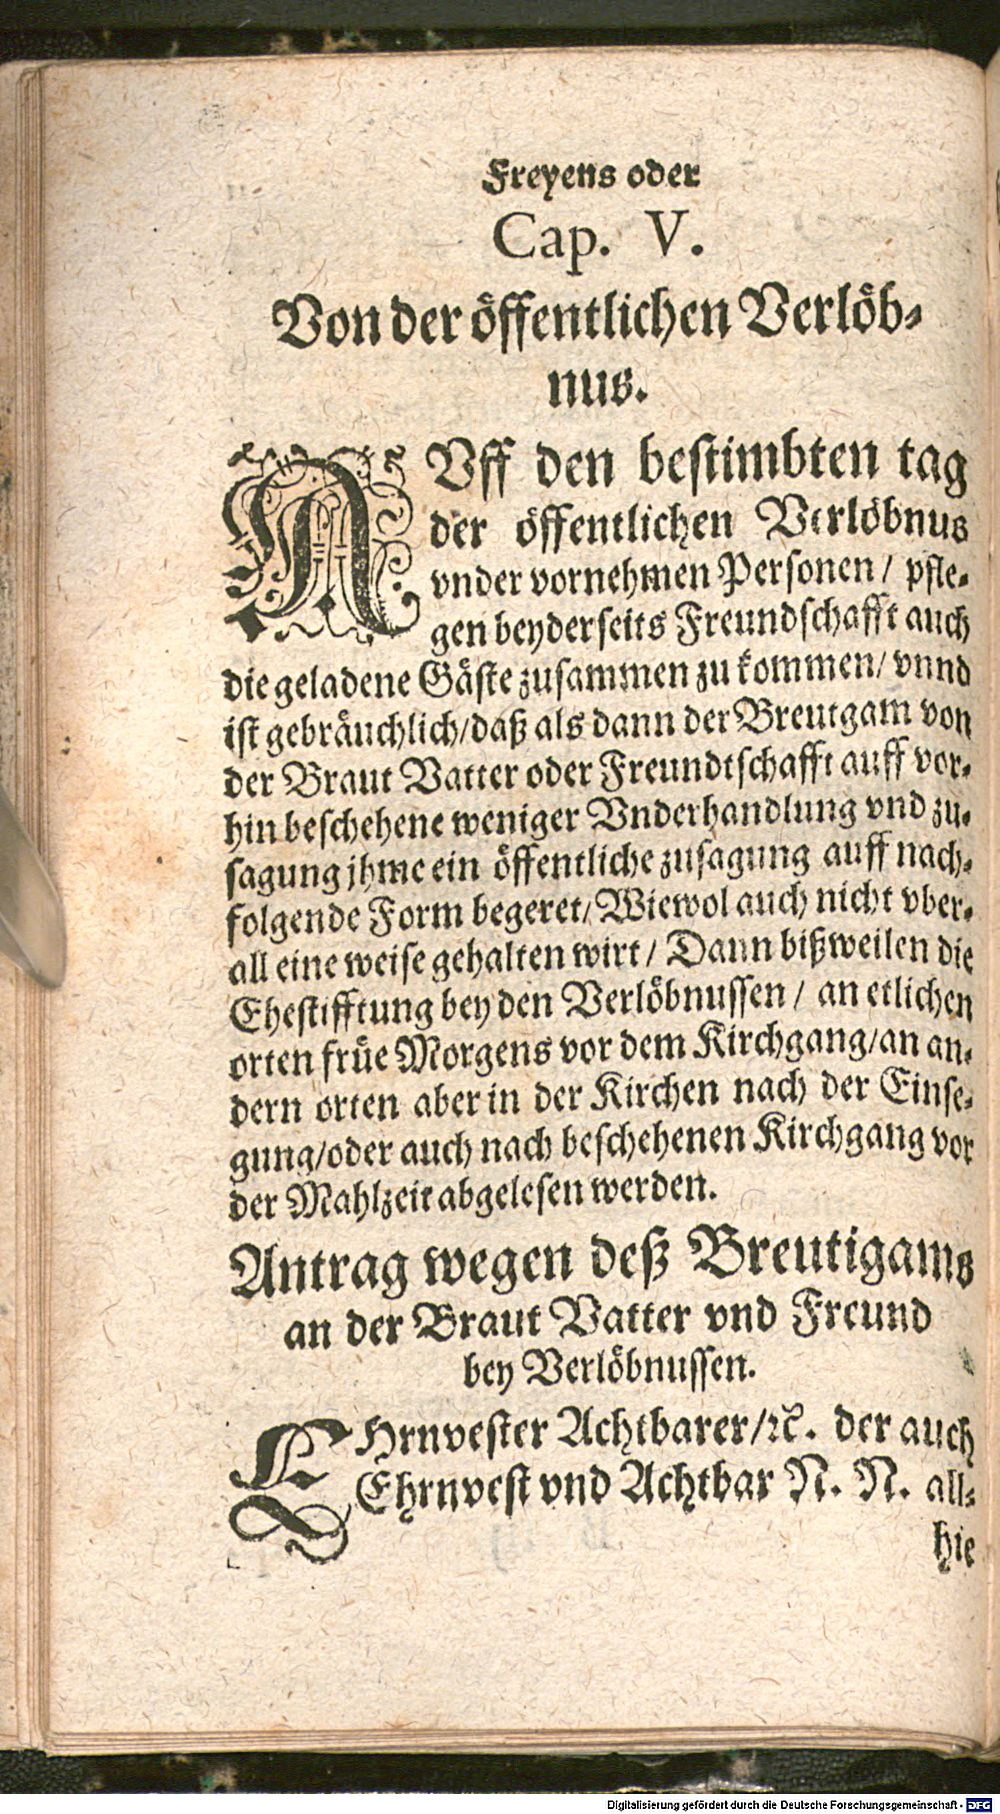 Freyens oder
Cap. V.
Von der öffentlichen Verlöb-
nus.
AUff den bestimbten tag
der öffentlichen Verlöbnus
vnder vornehmen Personen / pfle-
gen beyderseits Freundschafft auch
die geladene Gäste zusammen zu kommen / vnnd
ist gebräuchlich / daß als dann der Breutgam von
der Braut Vatter oder Freundtschafft auff vor-
hin beschehene weniger Vnderhandlung vnd zu-
sagung jhme ein öffentliche zusagung auff nach-
folgende Form begeret / Wiewol auch nicht vber-
all eine weise gehalten wirt / Dann bißweilen die
Ehestifftung bey den Verlöbnussen / an etlichen
orten früe Morgens vor dem Kirchgang / an an-
dern orten aber in der Kirchen nach der Einse-
gung / oder auch nach beschehenen Kirchgang vor
der Mahlzeit abgelesen werden.
Antrag wegen deß Breutigams
an der Braut Vatter vnd Freund
bey Verlöbnussen.
EHrnvester Achtbarer / ꝛc. der auch
Ehrnvest vnd Achtbar N. N. all-
hie
Digitalisierung gefördert durch die Deutsche Forschungsgemeinschaft - DFG